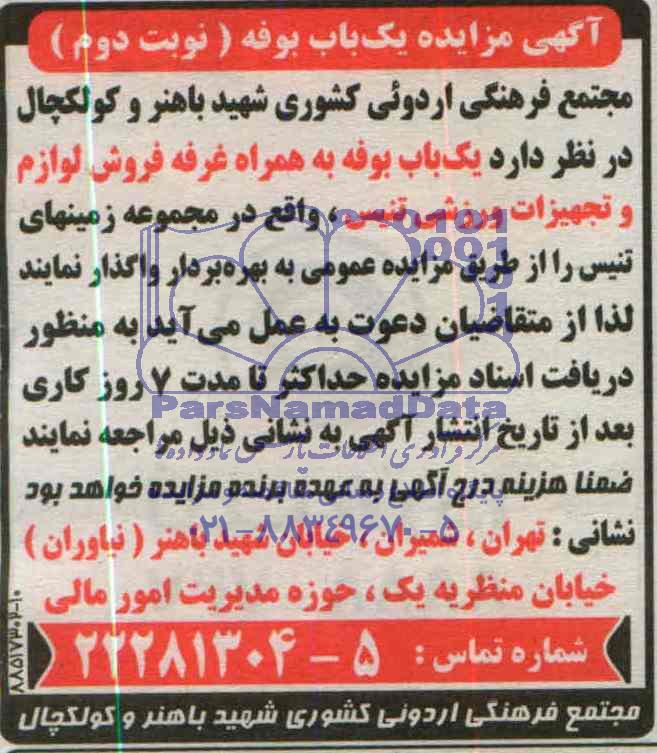 آگهی مزایده یک‌باب بوفه ( نوبت دوم )
مجتمع فرهنگی اردوئی کشوری شهید باهنر و کولکچال
در نظر دارد یک‌باب بوفه به همراه غرفه فروش لوازم
و تجهیزات ورزشی تنیس، واقع در مجموعه زمینهای
تنیس را از طریق مزایده عمومی به بهره‌بردار واگذار نمایند
لذا از متقاضیان دعوت به عمل می‌آید به منظور
دریافت اسناد مزایده حداکثر تا مدت ۷ روز کاری
ParsNamadData
بعد از تاریخ انتشار آگهی به نشانی ذیل مراجعه نمایند
ضمنا هزینه درج آگهی به عهده برنده مزایده خواهد بود
۰۲۱-۸۸۳۴۹۶۷۰-۵
نشانی : تهران ، شمیران ، خیابان شهید باهنر ( نیاوران )
خیابان منظریه یک ، حوزه مدیریت امور مالی
شماره تماس : ۵ – ۲۲۲۸۱۳۰۴
مجتمع فرهنگی اردوئی کشوری شهید باهنر و کولکچال